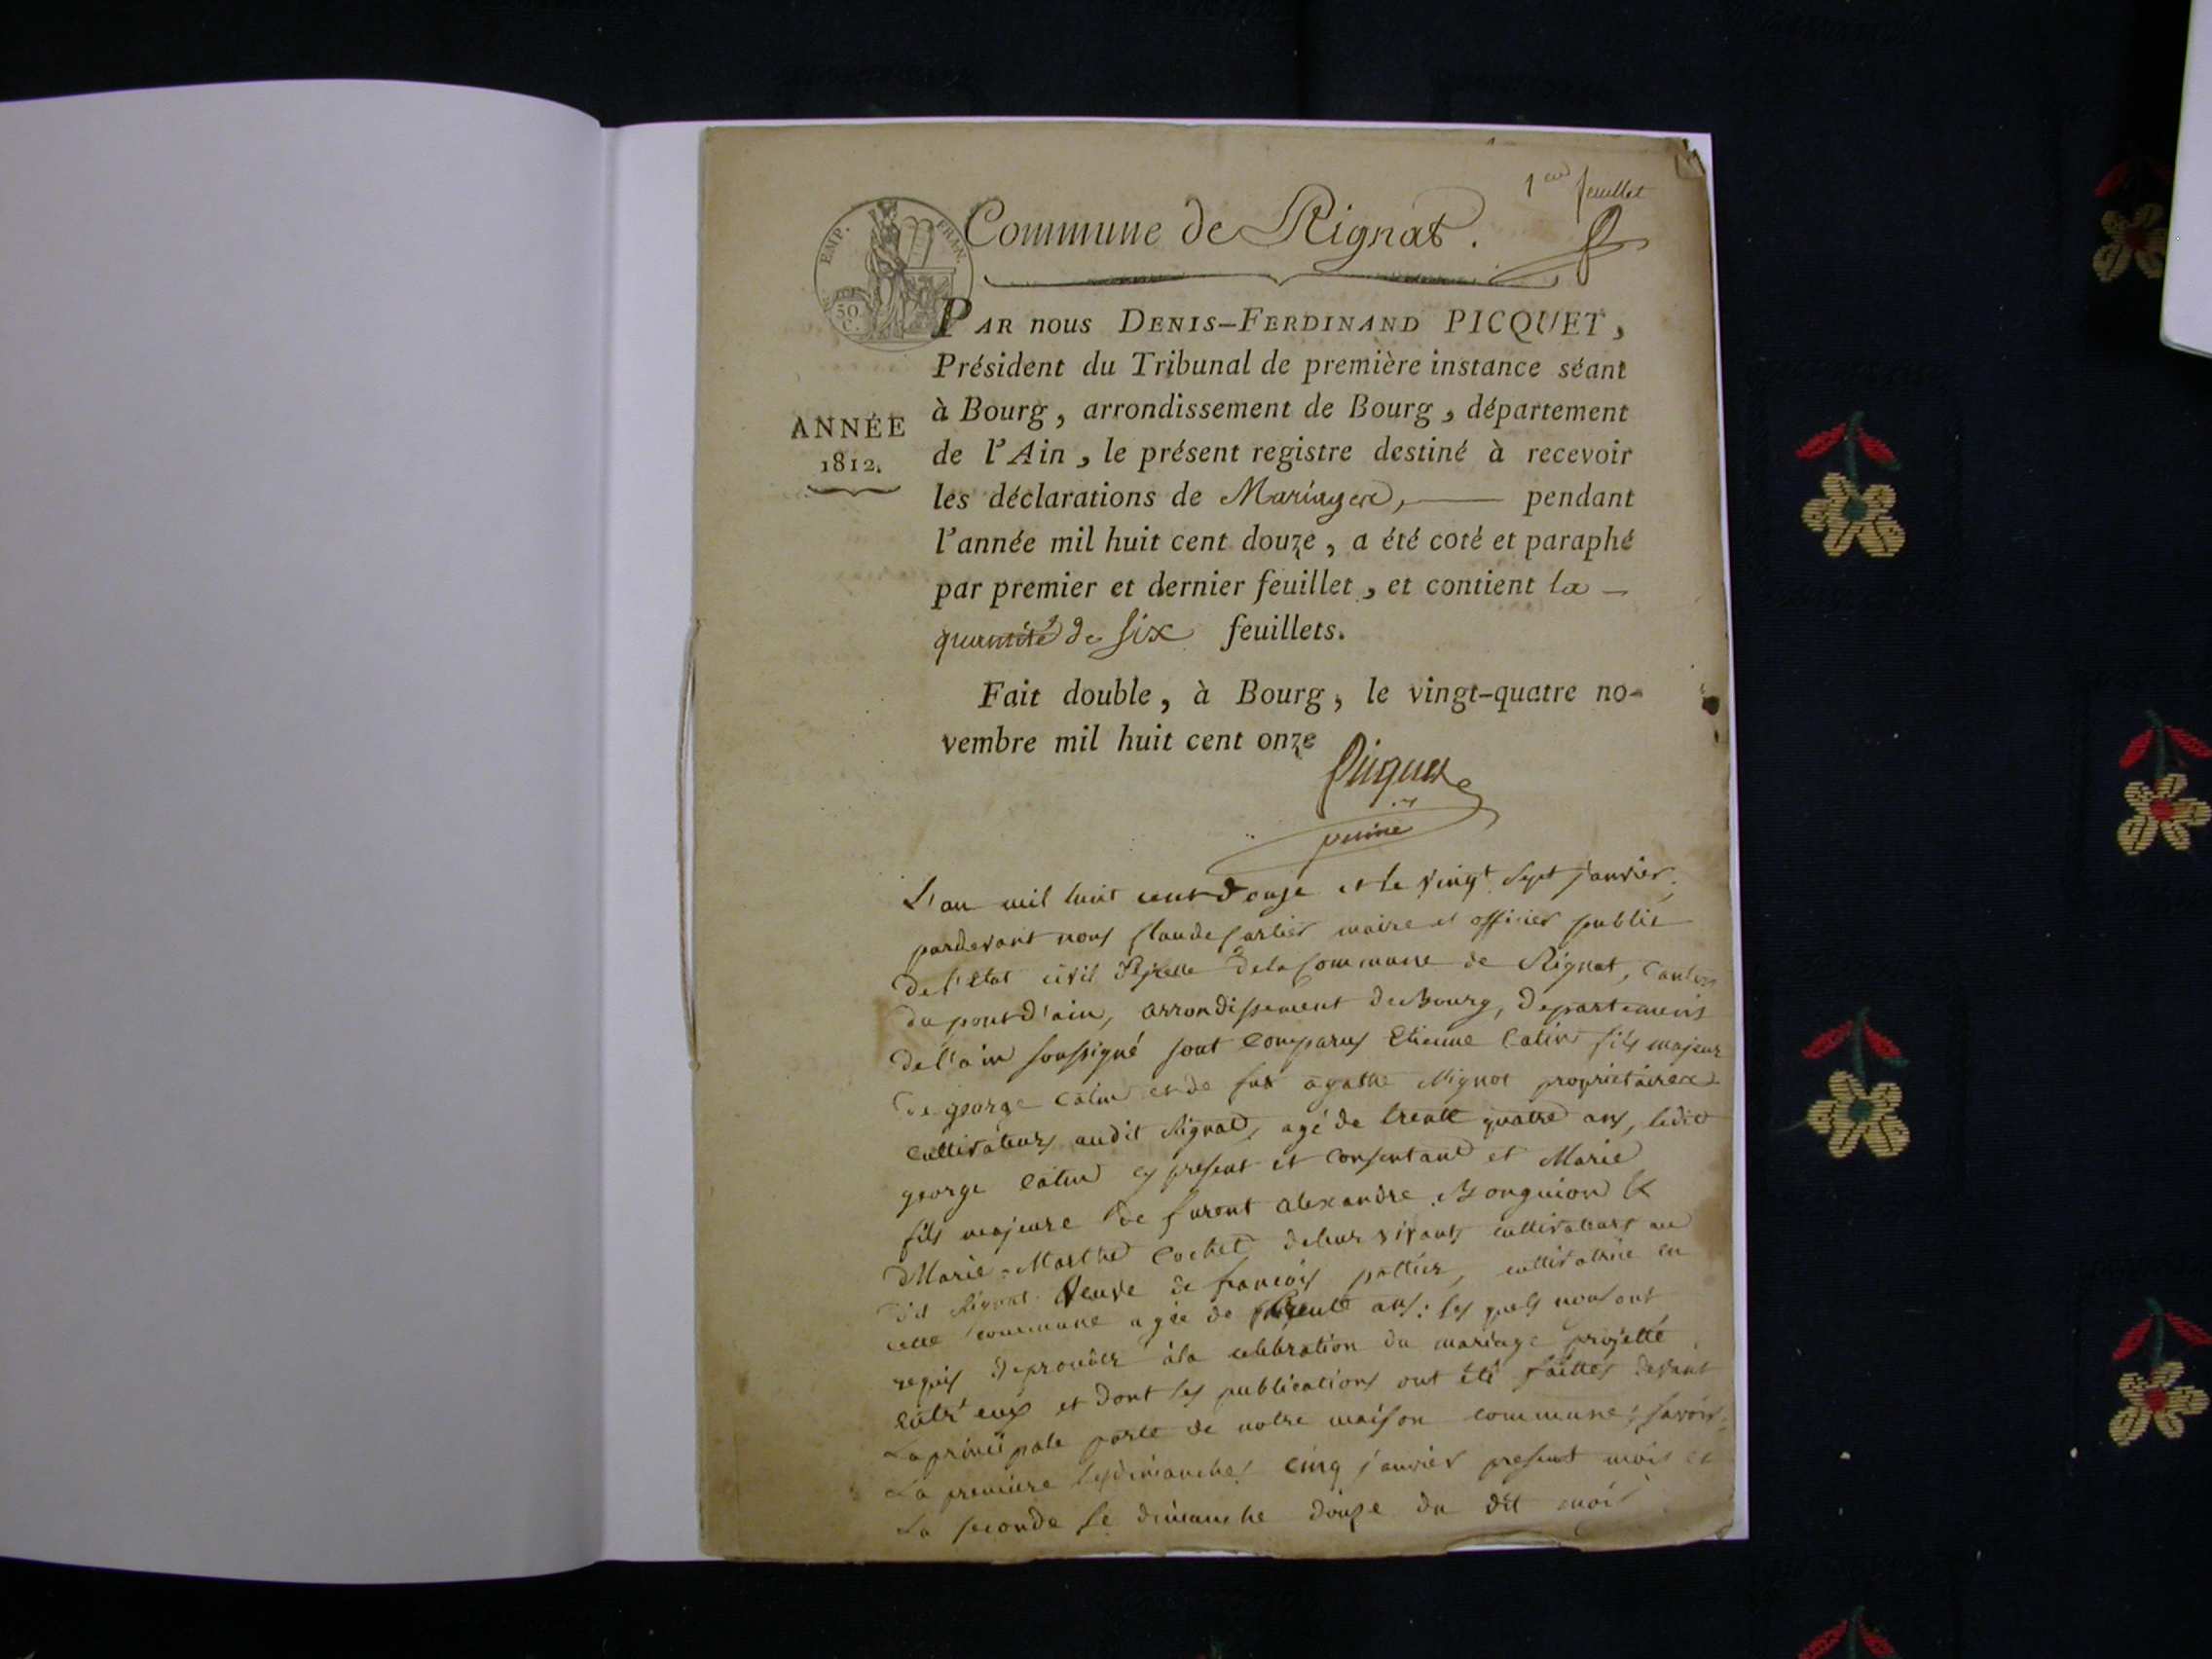 1er feuillet
EMP. FRAN.
50
C.
Commune de Rignat.
PAR nous DENIS-FERDINAND PICQUET,
Président du Tribunal de première instance séant
à Bourg, arrondissement de Bourg, département
de l'Ain, le présent registre destiné à recevoir
les déclarations de Mariages, pendant
l'année mil huit cent douze, a été coté et paraphé
par premier et dernier feuillet, et contient la
quantité de six feuillets.
ANNÉE
1812.
Fait double, à Bourg, le vingt-quatre no-
vembre mil huit cent onze
Picquet
L'an mil huit cent douze et le vingt sept janvier,
pardevant nous Claude maire et officier public
de l'état civil de la commune de Rignat, canton
du pont d'ain, arrondissement de Bourg, departement
de l'ain soussigné sont comparus Etienne Catin fils majeur
de george Catin et de fue agathe Mignot propriétaires
cultivateurs audit Rignat, agé de trente quatre ans, ledit
george Catin cy present et consentant et Marie
fille majeure de furent alexandre Bonguion &
Marie-Marthe Cochet de leur vivants cultivateurs au
dit Rignat veuve de françois pottier, cultivatrice en
cette commune agée de trente ans: les quels nous ont
requis de proceder à la celebration du mariage projetté
entr'eux et dont les publications ont été faittes devant
La principale porte de notre maison commune; savoir,
La premiere le dimanche cinq janvier present mois et
La seconde le dimanche douze du dit mois